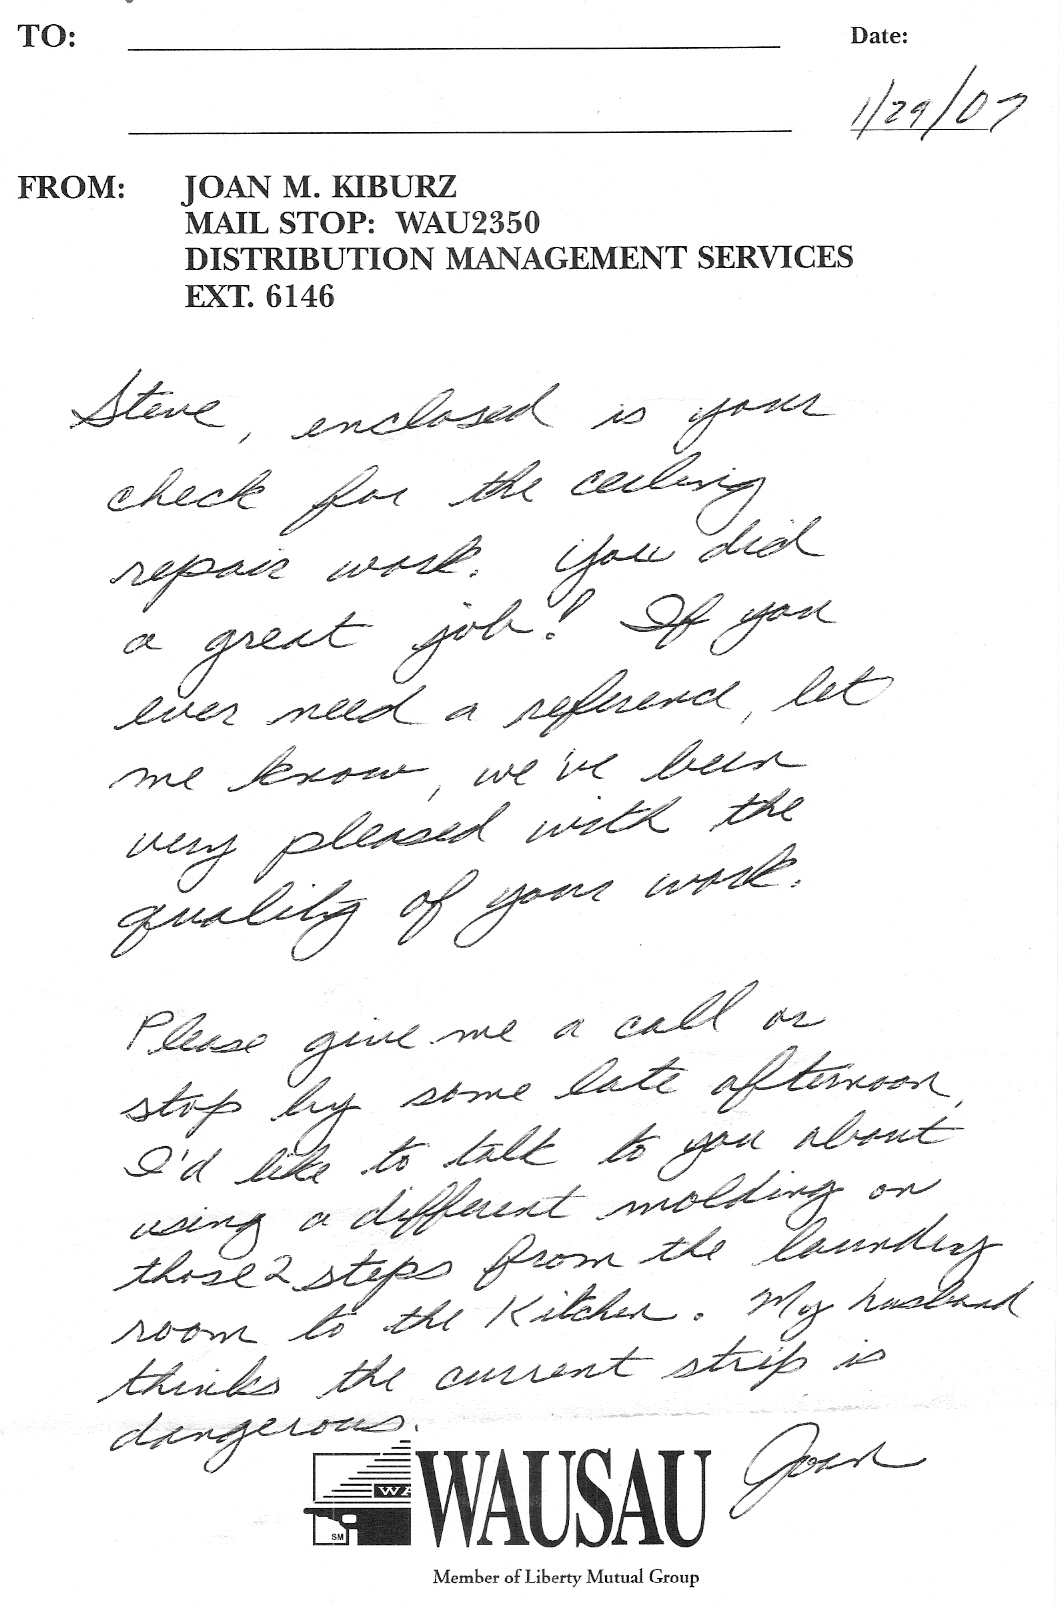 TO:
Date:
1/29/07
FROM: JOAN M. KIBURZ
MAIL STOP: WAU2350
DISTRIBUTION MANAGEMENT SERVICES
EXT. 6146
Steve, enclosed is your
check for the ceiling
repair work. You did
a great job! If you
ever need a reference, let
me know, we've been
very pleased with the
quality of your work.
Please give me a call or
stop by some late afternoon,
I'd like to talk to you about
using a different molding on
those 2 steps from the laundry
room to the Kitchen. My husband
thinks the current strip is
dangerous.
Joan
WA
SM
WAUSAU
Member of Liberty Mutual Group